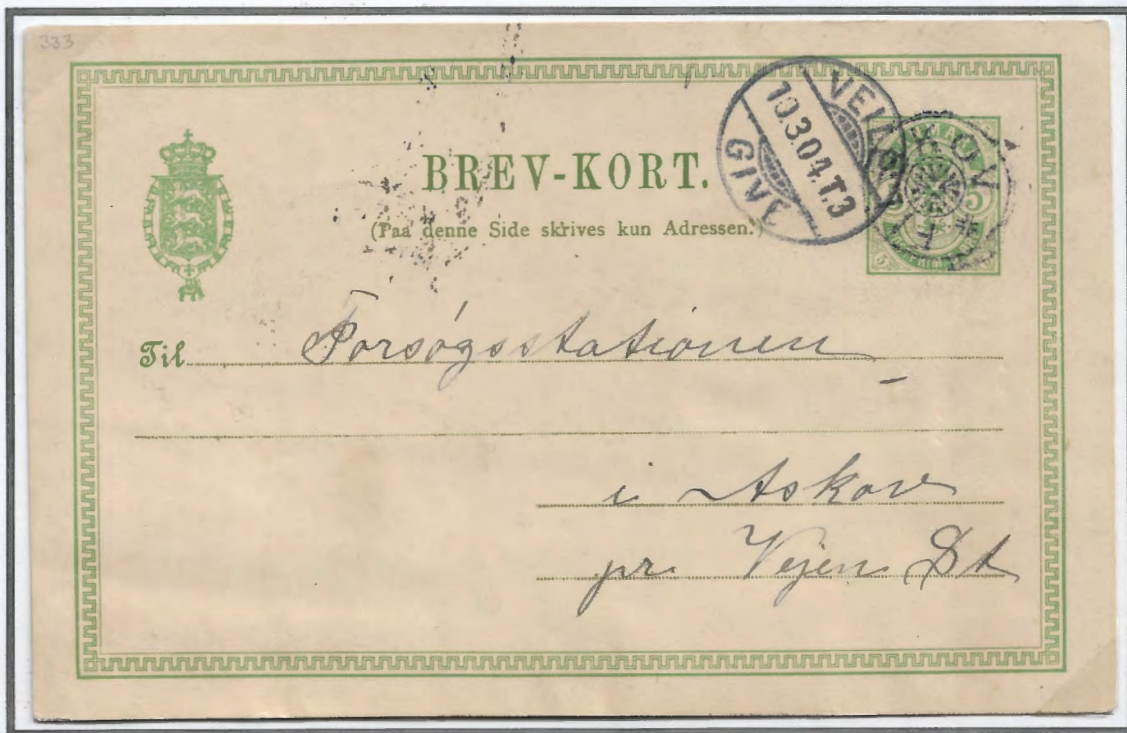 333
BREV-KORT.
(Paa denne Side skrives kun Adressen.)
VEJLE
10.3.04.T.3
GIVE
5 5
5
Til Forsøgsstationen
i Askov
pr. Vejen St